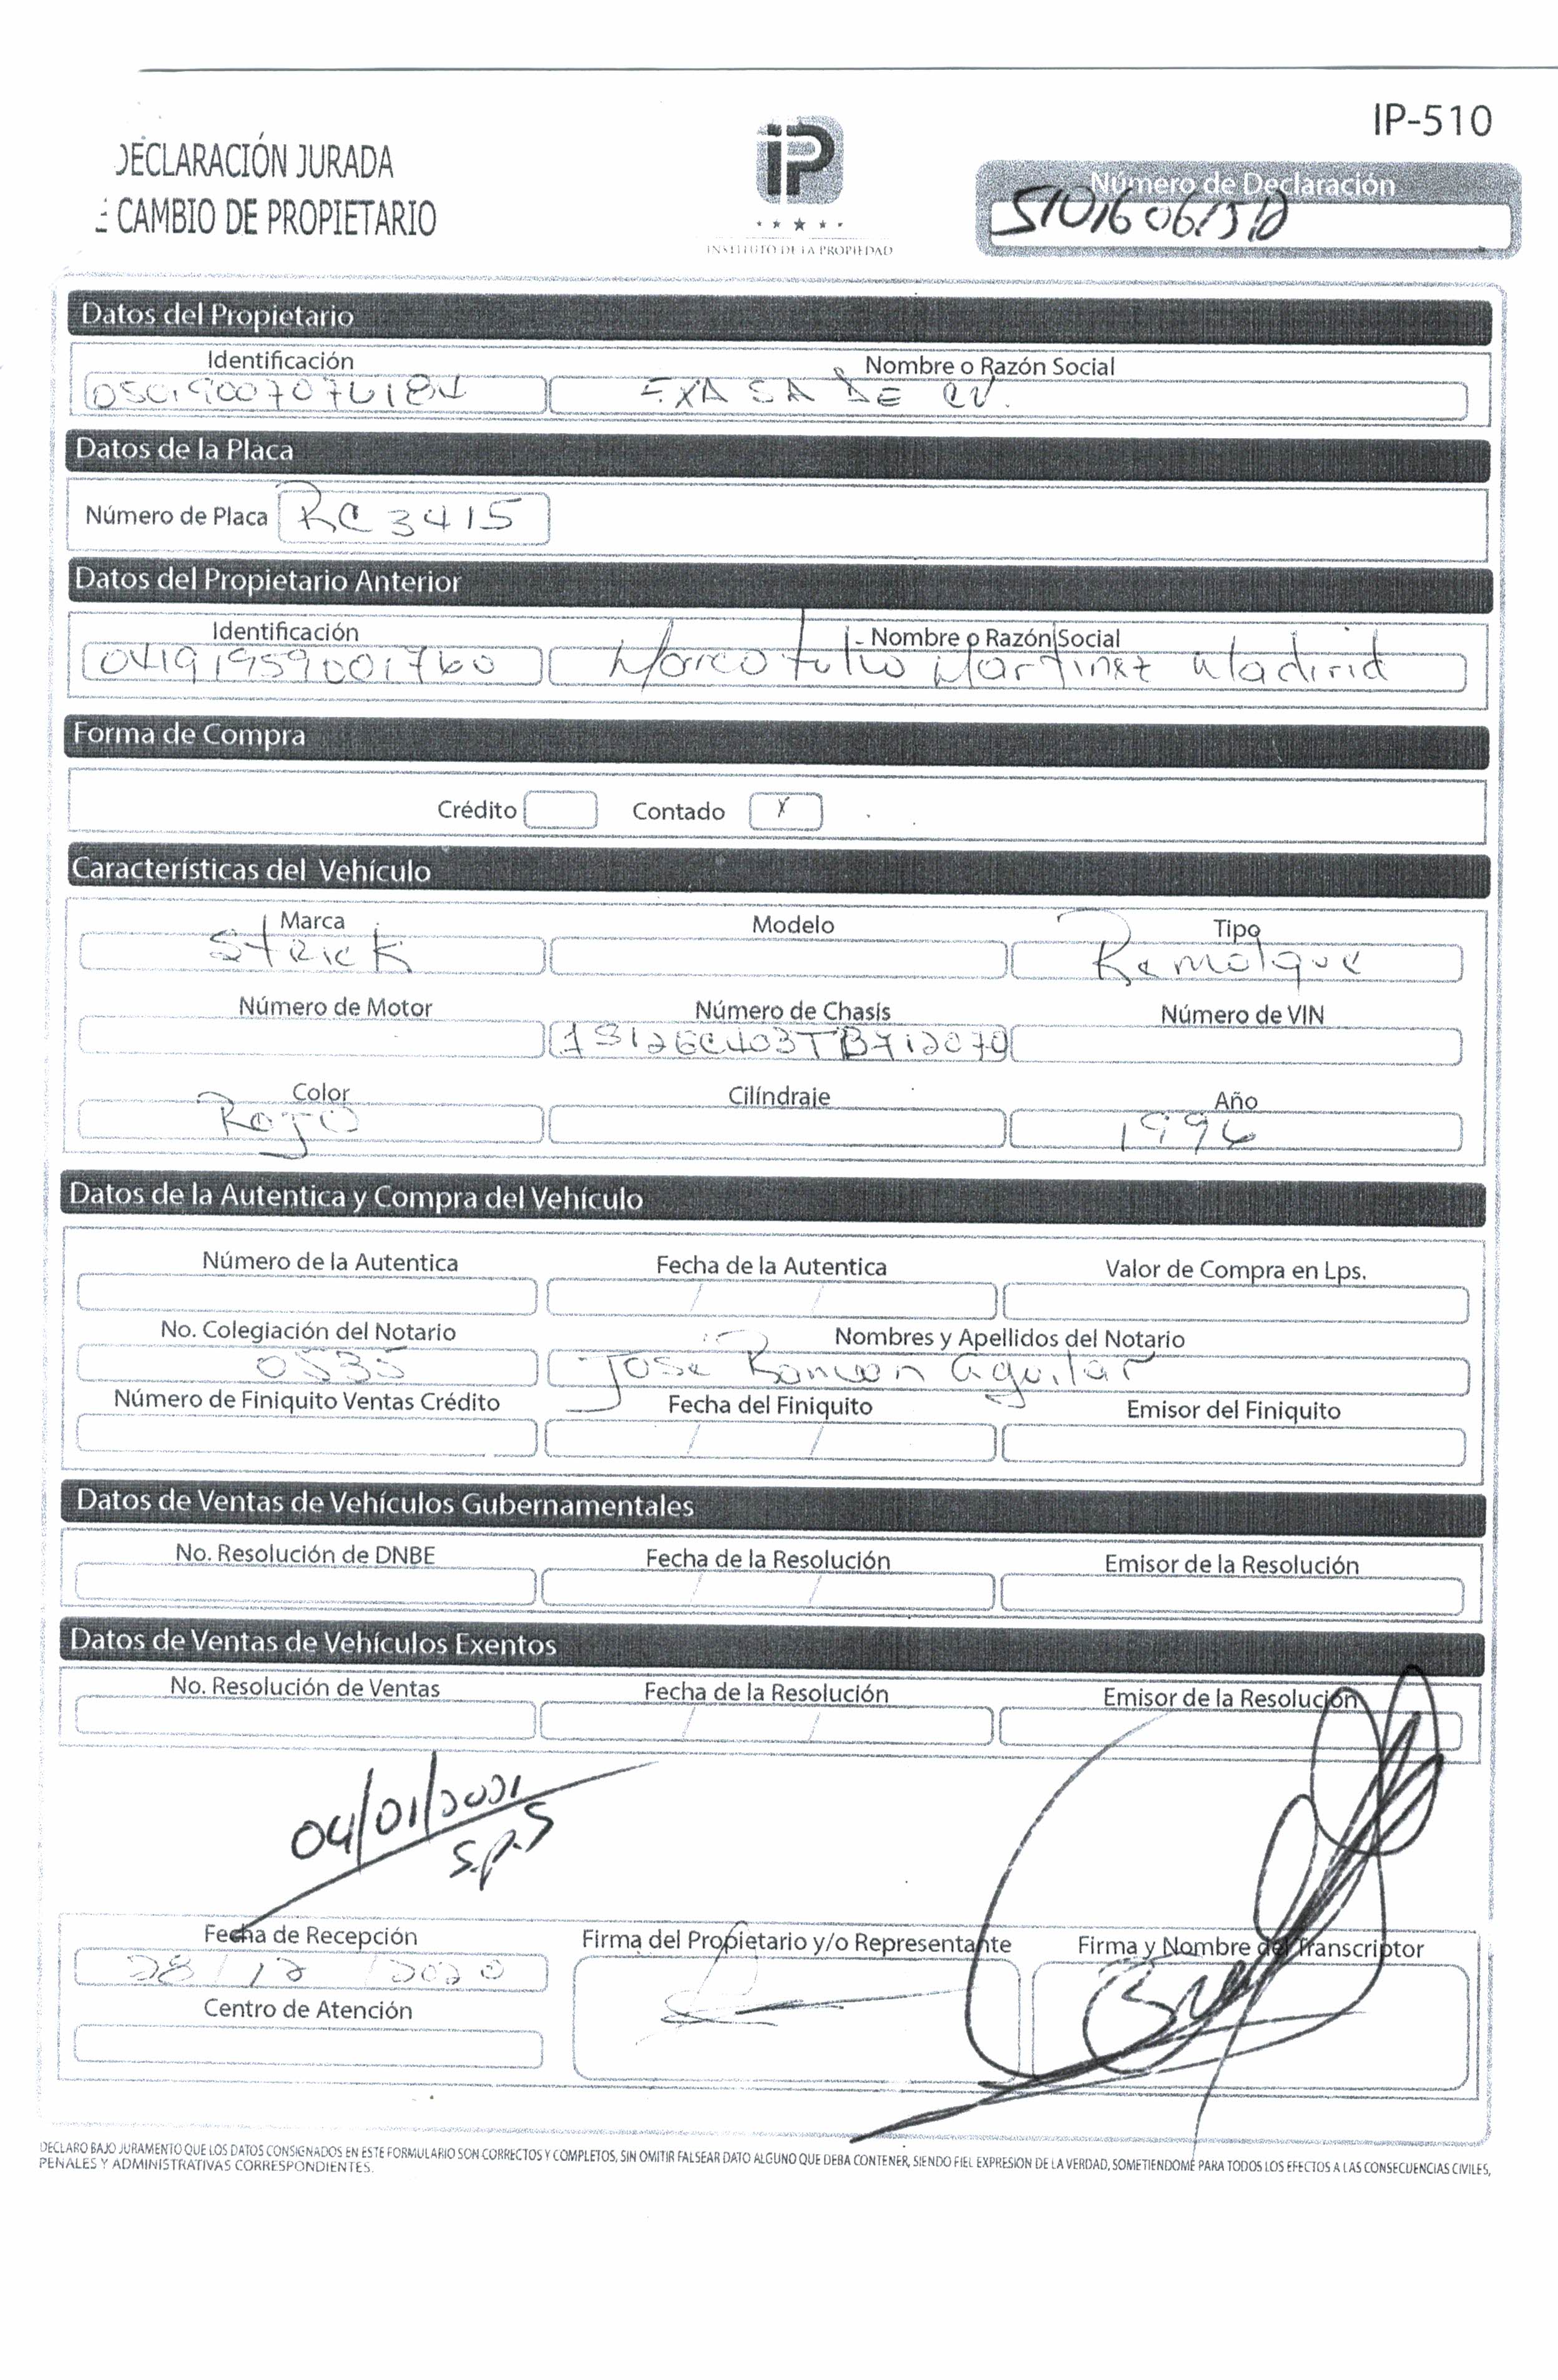 IP-510
DECLARACIÓN JURADA
E CAMBIO DE PROPIETARIO
iP
INSTITUTO DE LA PROPIEDAD
Número de Declaración
Datos del Propietario
Identificación
Nombre o Razón Social
EXA SA DE CV.
Datos de la Placa
Número de Placa RC 3415
Datos del Propietario Anterior
Identificación
Nombre o Razón Social
04191959001760
Marco Tulio Martinez Madirid
Forma de Compra
Crédito Contado X
Características del Vehículo
Marca Modelo Tipo
Strick Remolque
Número de Motor Número de Chasís Número de VIN
1S12EC403TB712070
Color Cilíndraje Año
Rojo 1996
Datos de la Autentica y Compra del Vehículo
Número de la Autentica Fecha de la Autentica Valor de Compra en Lps.
/ /
No. Colegiación del Notario Nombres y Apellidos del Notario
0535 Jose Ramon Aguilar
Número de Finiquito Ventas Crédito Fecha del Finiquito Emisor del Finiquito
/ /
Datos de Ventas de Vehículos Gubernamentales
No. Resolución de DNBE Fecha de la Resolución Emisor de la Resolución
/ /
Datos de Ventas de Vehículos Exentos
No. Resolución de Ventas Fecha de la Resolución Emisor de la Resolución
/ /
04/01/2021
S.P.S
Fecha de Recepción Firma del Propietario y/o Representante Firma y Nombre del Transcriptor
28/12/2020
Centro de Atención
DECLARO BAJO JURAMENTO QUE LOS DATOS CONSIGNADOS EN ESTE FORMULARIO SON CORRECTOS Y COMPLETOS, SIN OMITIR FALSEAR DATO ALGUNO QUE DEBA CONTENER, SIENDO FIEL EXPRESION DE LA VERDAD, SOMETIENDOME PARA TODOS LOS EFECTOS A LAS CONSECUENCIAS CIVILES,
PENALES Y ADMINISTRATIVAS CORRESPONDIENTES.